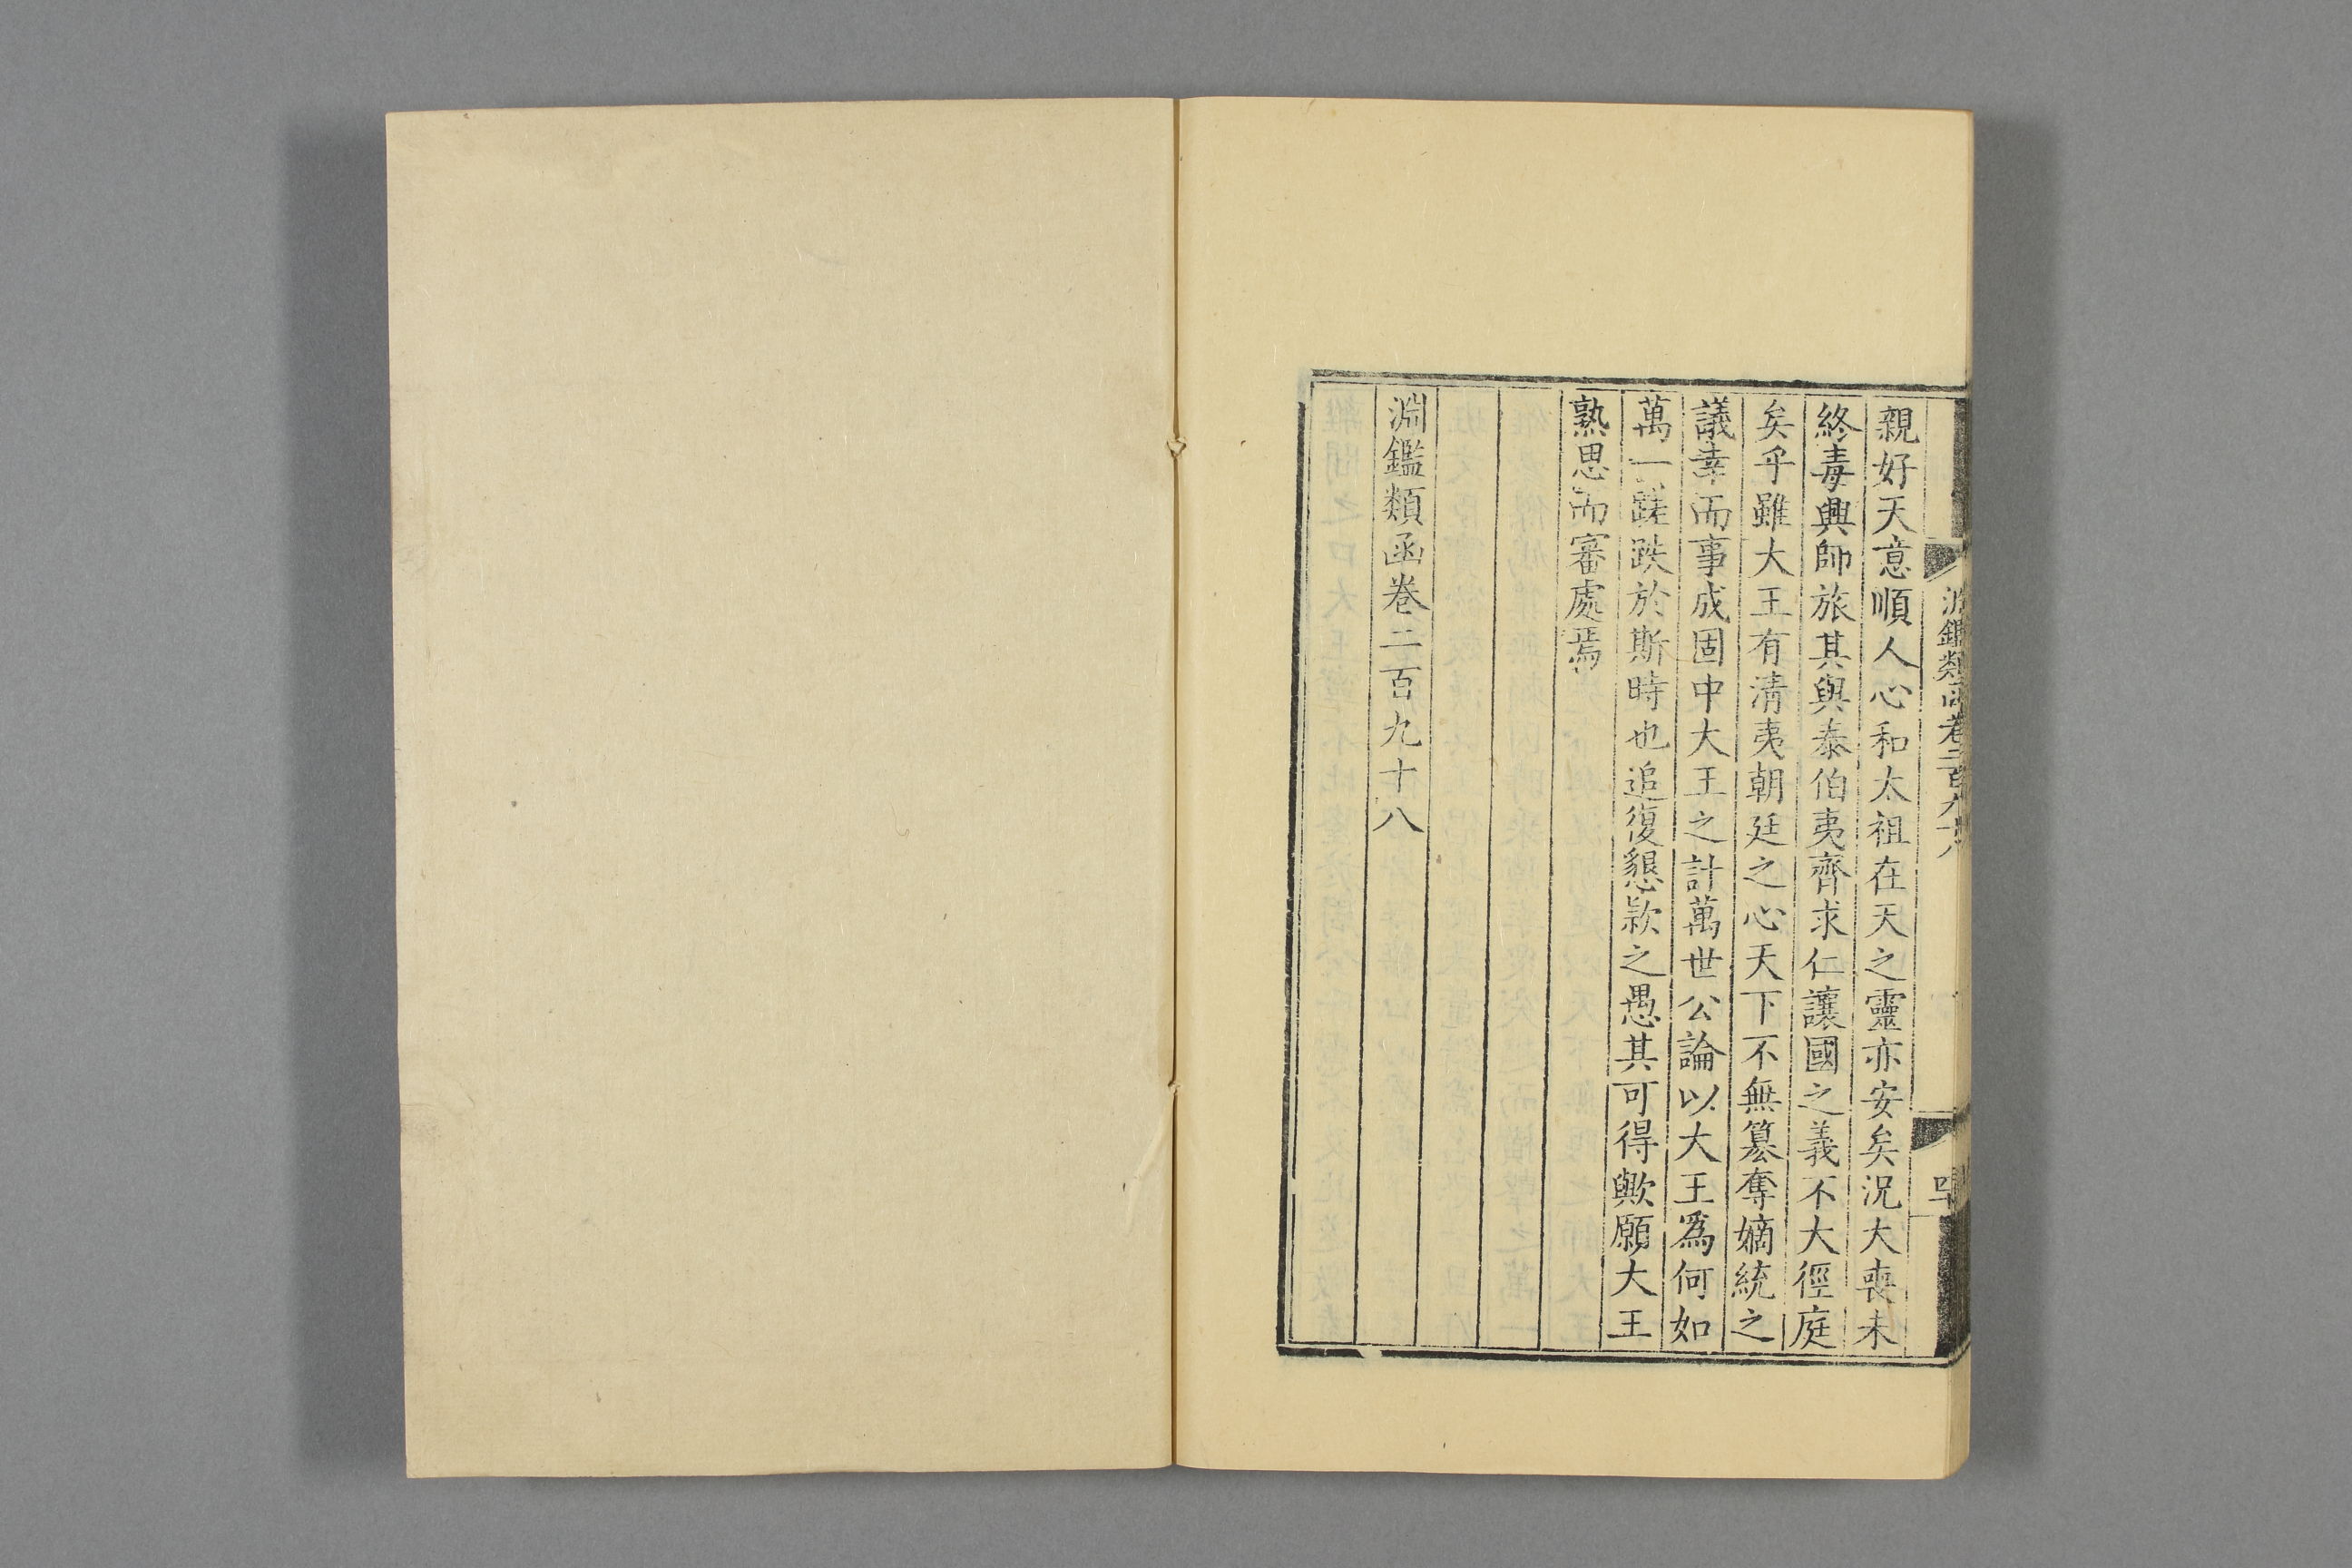 親好天意順人心和太祖在天之靈亦安矣況大喪未
終毒興師旅其與泰伯夷齊求仁讓國之義不大徑庭
矣乎雖大王有清夷朝廷之心天下不無篡奪嫡統之
議幸而事成固中大王之計萬世公論以大王爲何如
萬一蹉跌於斯時也追復懇款之愚其可得歟願大王
熟思而審處焉
淵鑑類函卷二百九十八